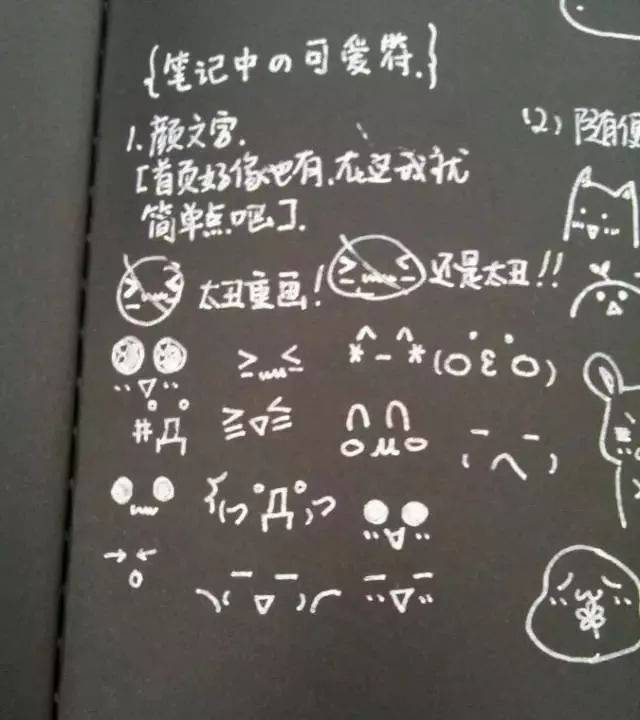 {笔记中の可爱符.}
1.颜文字.
[首页好像也有.在这我就
简单点吧].
太丑重画! 还是太丑!!
(2) 随便